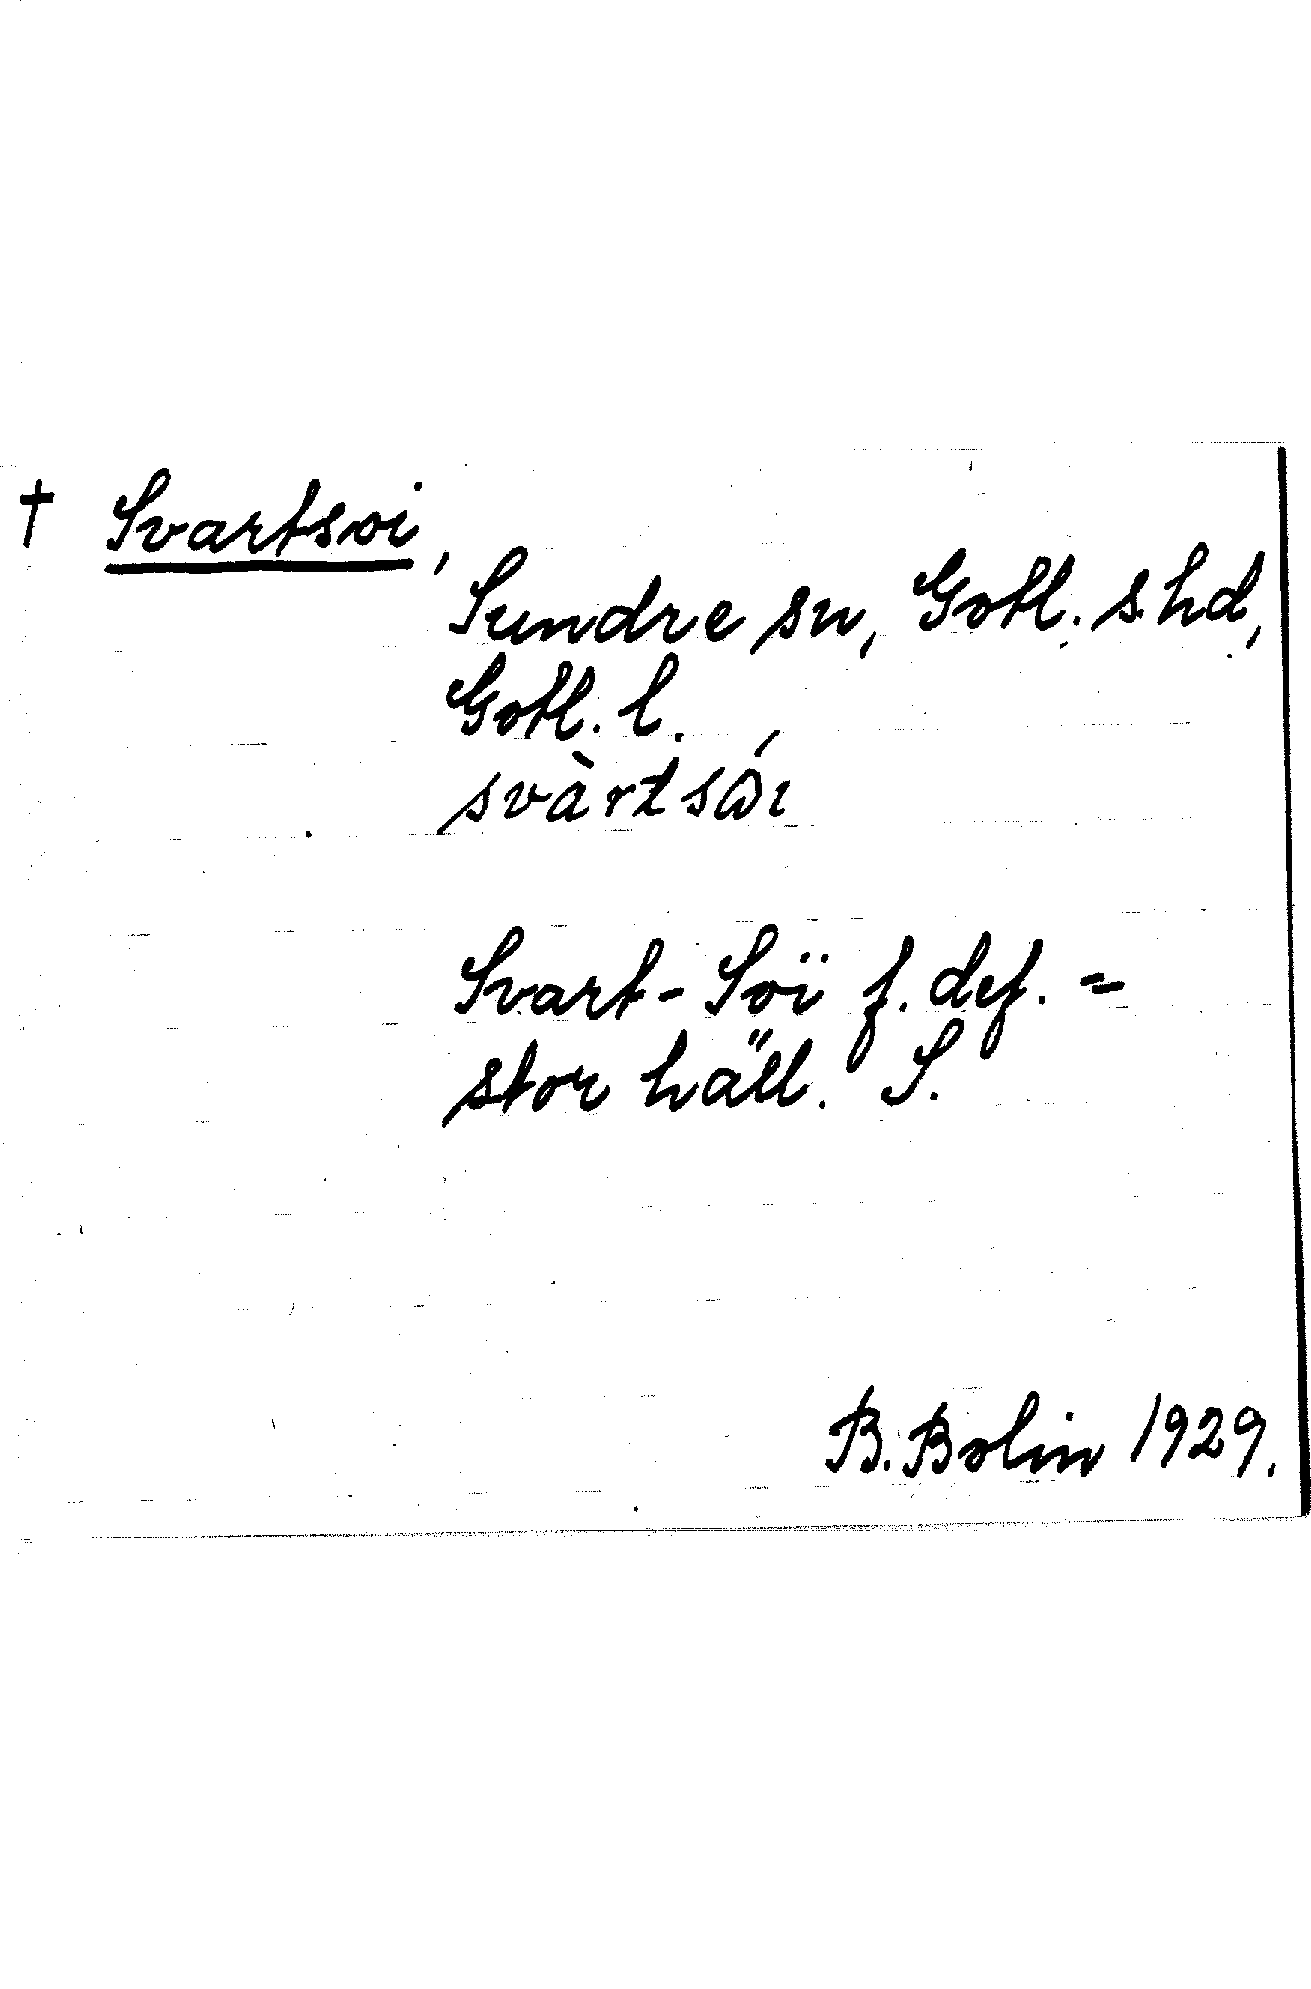 † Svartsoi,
Sundre sn, Gotl. s. hd,
Gotl. l.
Svart-Soï f. def. =
stor häll. S.
B. Bolin 1929.